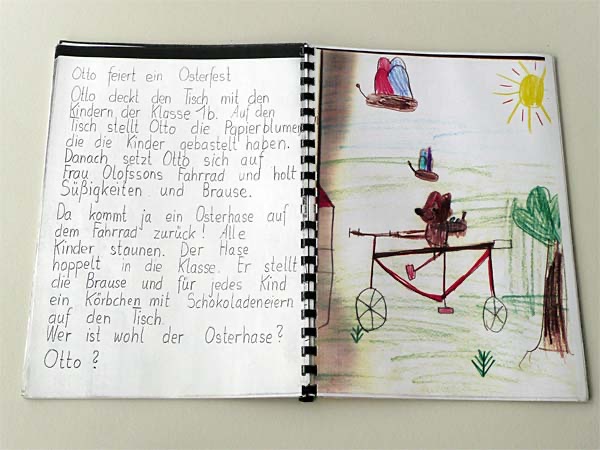 Otto feiert ein Osterfest
Otto deckt den Tisch mit den
Kindern der Klasse 1b. Auf den
Tisch stellt Otto die Papierblumen,
die die Kinder gebastelt haben.
Danach setzt Otto sich auf
Frau Olofssons Fahrrad und holt
Süßigkeiten und Brause.
Da kommt ja ein Osterhase auf
dem Fahrrad zurück! Alle
Kinder staunen. Der Hase
hoppelt in die Klasse. Er stellt
die Brause und für jedes Kind
ein Körbchen mit Schokoladeneiern
auf den Tisch.
Wer ist wohl der Osterhase?
Otto?